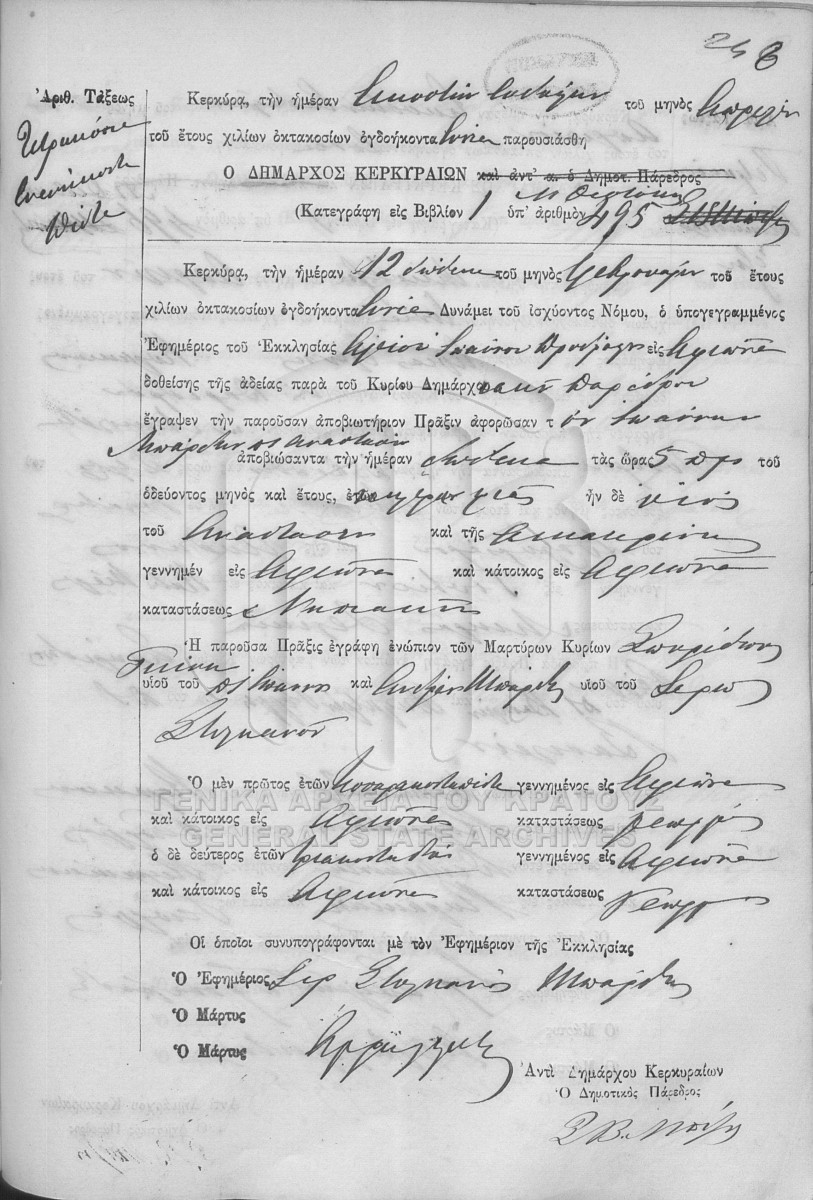 248
Ἀριθ. Τάξεως
Τετρακόσια
ἐνενήκοντα
πέντε
Κερκύρᾳ, τὴν ἡμέραν εἰκοστὴν τοῦ μηνὸς Ἀπριλίου
τοῦ ἔτους χιλίων ὀκτακοσίων ὀγδοήκοντα ἐννέα παρουσιάσθη
Ὁ ΔΗΜΑΡΧΟΣ ΚΕΡΚΥΡΑΙΩΝ καὶ ἀντ' α. ὁ Δημοτ. Πάρεδρος
(Κατεγράφη εἰς Βιβλίον 1 ὑπ' ἀριθμὸν 495
Κερκύρᾳ, τὴν ἡμέραν 12 δώδεκα τοῦ μηνὸς Φεβρουαρίου τοῦ ἔτους
χιλίων ὀκτακοσίων ὀγδοήκοντα ἐννέα Δυνάμει τοῦ ἰσχύοντος Νόμου, ὁ ὑπογεγραμμένος
Ἐφημέριος τοῦ Ἐκκλησίας Ἁγίου Ἰωάννου Προδρόμου εἰς Ἀφιῶνα
δοθείσης τῆς ἀδείας παρὰ τοῦ Κυρίου Δημάρχου Παρέδρου
ἔγραψεν τὴν παροῦσαν ἀποβιωτήριον Πρᾶξιν ἀφορῶσαν τ ὸν Ἰωάννην
Μπάρδην Ἀναστάση
ἀποβιώσαντα τὴν ἡμέραν δώδεκα τὰς ὥρας 5 π.μ. τοῦ
ὁδεύοντος μηνὸς καὶ ἔτους, ἐτῶν ἡμερῶν μιᾶς ἦν δὲ υἱὸς
τοῦ Ἀναστάση καὶ τῆς Αἰκατερίνης
γεννημέν εἰς Ἀφιῶνα καὶ κάτοικος εἰς Ἀφιῶνα
καταστάσεως Νηπιακῆς
Ἡ παροῦσα Πρᾶξις ἐγράφη ἐνώπιον τῶν Μαρτύρων Κυρίων Σπυρίδωνος
υἱοῦ τοῦ Ἰωάννου καὶ Ἀνδρέα Μπάρδη υἱοῦ τοῦ Σὲρ
Στυλιανοῦ
Ὁ μὲν πρῶτος ἐτῶν τεσσαρακονταπέντε γεννημένος εἰς Ἀφιῶνα
καὶ κάτοικος εἰς Ἀφιῶνα καταστάσεως γεωργὸς
ὁ δὲ δεύτερος ἐτῶν γεννημένος εἰς Ἀφιῶνα
καὶ κάτοικος εἰς Ἀφιῶνα καταστάσεως Γεωργ
Οἱ ὁποῖοι συνυπογράφονται μὲ τὸν Ἐφημέριον τῆς Ἐκκλησίας
Ὁ Ἐφημέριος Σὲρ Στυλιανὸς Μπάρδης
Ὁ Μάρτυς
Ὁ Μάρτυς
Ἀντὶ Δημάρχου Κερκυραίων
Ὁ Δημοτικὸς Πάρεδρος
ΓΕΝΙΚΑ ΑΡΧΕΙΑ ΤΟΥ ΚΡΑΤΟΥΣ
GENERAL STATE ARCHIVES